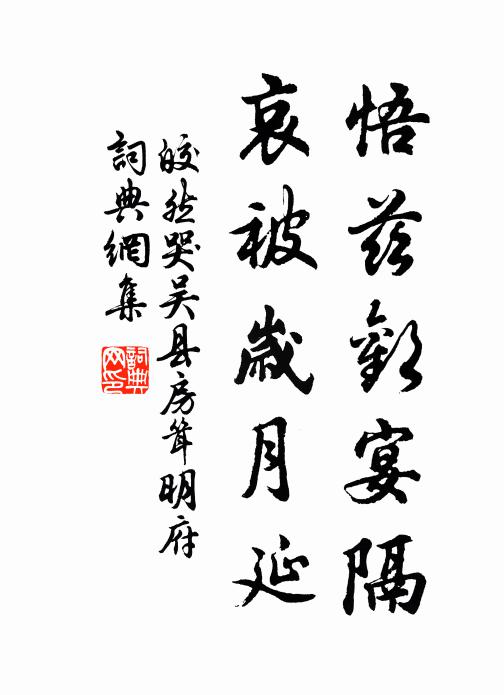 悟茲歡宴隔
哀被歲月延
皎然哭吴县房耸明府
詞典網集
詞典
网印